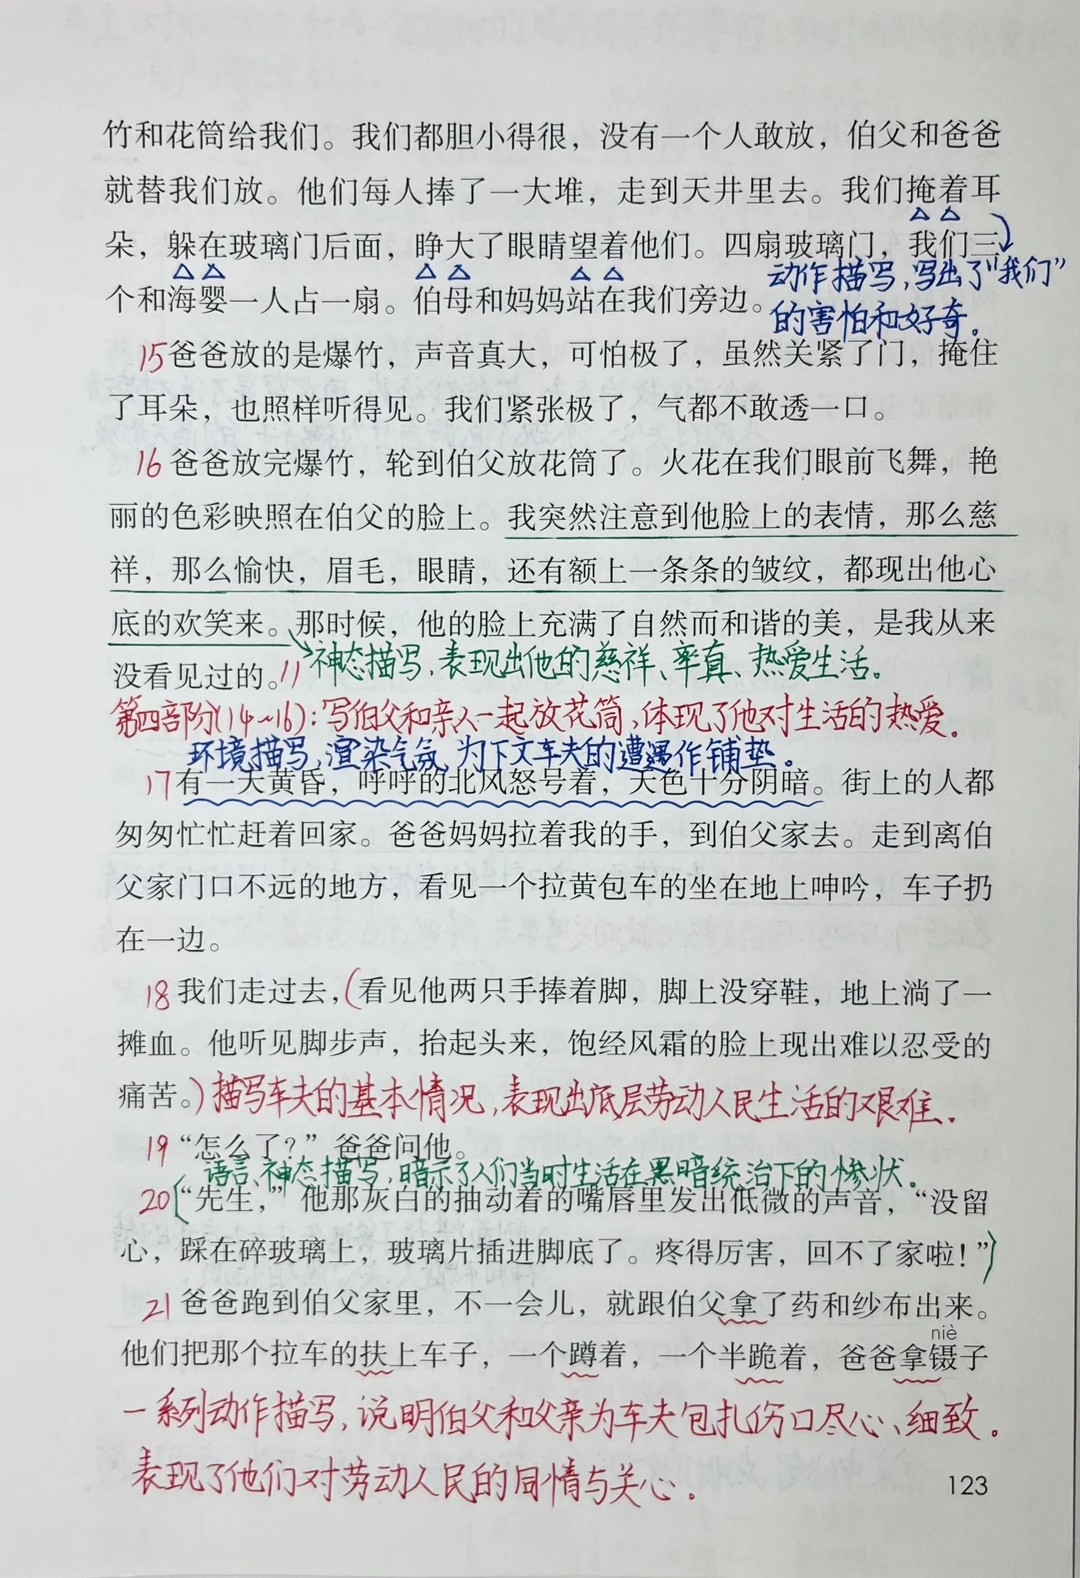 竹和花筒给我们。我们都胆小得很，没有一个人敢放，伯父和爸爸
就替我们放。他们每人捧了一大堆，走到天井里去。我们掩着耳
朵，躲在玻璃门后面，睁大了眼睛望着他们。四扇玻璃门，我们三
动作描写，写出了“我们”
个和海婴一人占一扇。伯母和妈妈站在我们旁边。
的害怕和好奇。
15爸爸放的是爆竹，声音真大，可怕极了，虽然关紧了门，掩住
了耳朵，也照样听得见。我们紧张极了，气都不敢透一口。
16爸爸放完爆竹，轮到伯父放花筒了。火花在我们眼前飞舞，艳
丽的色彩映照在伯父的脸上。我突然注意到他脸上的表情，那么慈
祥，那么愉快，眉毛，眼睛，还有额上一条条的皱纹，都现出他心
底的欢笑来。那时候，他的脸上充满了自然而和谐的美，是我从来
没看见过的。//
神态描写，表现出他的慈祥、率真、热爱生活。
第四部分(14~16)：写伯父和亲人一起放花筒，体现了他对生活的热爱。
环境描写，渲染气氛，为下文车夫的遭遇作铺垫。
17有一天黄昏，呼呼的北风怒号着，天色十分阴暗。街上的人都
匆匆忙忙赶着回家。爸爸妈妈拉着我的手，到伯父家去。走到离伯
父家门口不远的地方，看见一个拉黄包车的坐在地上呻吟，车子扔
在一边。
18我们走过去，(看见他两只手捧着脚，脚上没穿鞋，地上淌了一
摊血。他听见脚步声，抬起头来，饱经风霜的脸上现出难以忍受的
痛苦。)描写车夫的基本情况，表现出底层劳动人民生活的艰难。
19“怎么了？”爸爸问他。
语言、神态描写，暗示了人们当时生活在黑暗统治下的惨状。
20(“先生，”他那灰白的抽动着的嘴唇里发出低微的声音，“没留
心，踩在碎玻璃上，玻璃片插进脚底了。疼得厉害，回不了家啦！”)
21爸爸跑到伯父家里，不一会儿，就跟伯父拿了药和纱布出来。
niè
他们把那个拉车的扶上车子，一个蹲着，一个半跪着，爸爸拿镊子
一系列动作描写，说明伯父和父亲为车夫包扎伤口尽心、细致。
表现了他们对劳动人民的同情与关心。
123